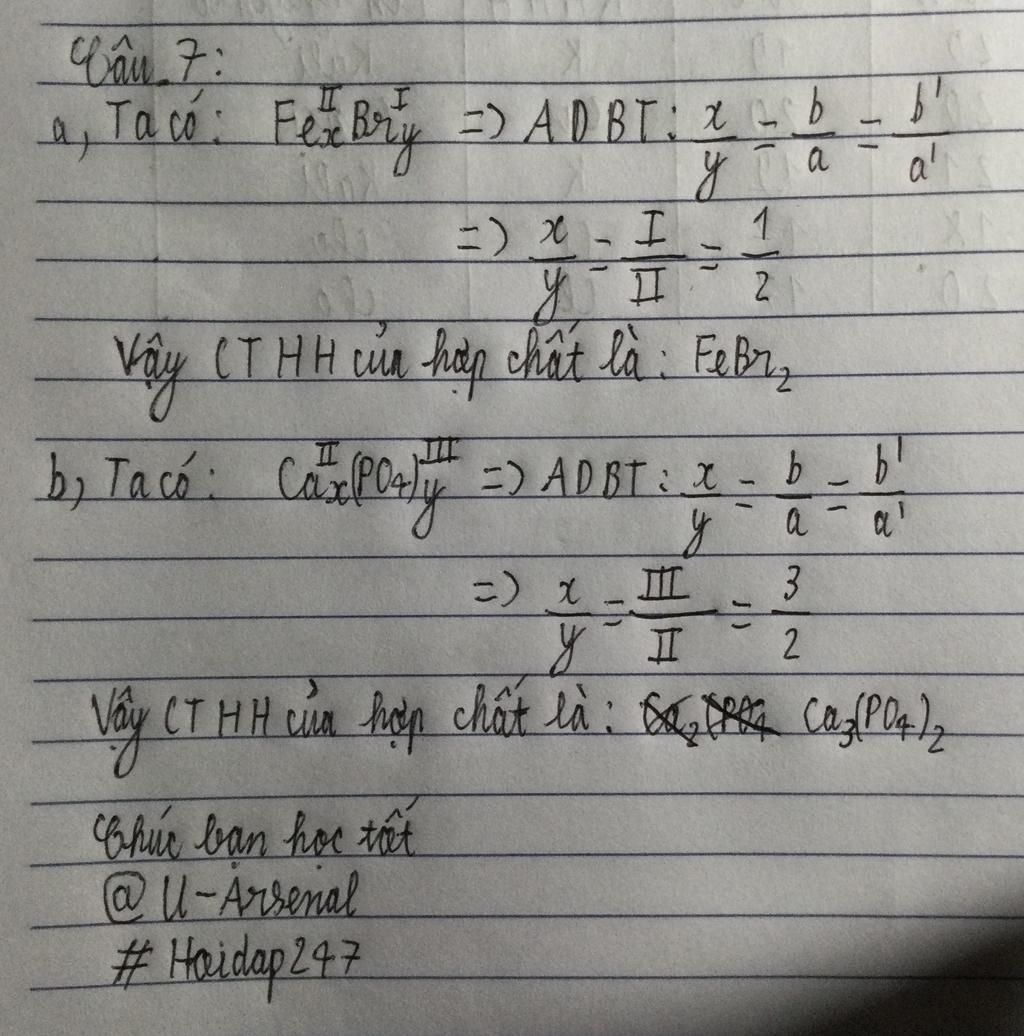 Câu 7:
a, Ta có: Feₓᴵᴵ Br_yᴵ => ADBT: x/y = b/a = b'/a'
=> x/y = I/II = 1/2
Vậy CTHH của hợp chất là: FeBr₂
b, Ta có: Caₓᴵᴵ(PO₄)_yᴵᴵᴵ => ADBT: x/y = b/a = b'/a'
=> x/y = III/II = 3/2
Vậy CTHH của hợp chất là: Ca₃(PO₄)₂
Chúc bạn học tốt
@U-Arsenal
# Hoidap247